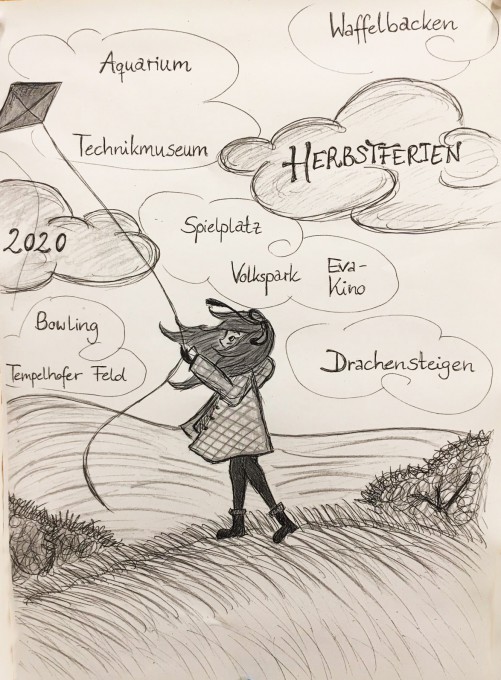 Waffelbacken
Aquarium
Technikmuseum
HERBSTFERIEN
2020
Spielplatz
Volkspark
Eva-
Kino
Bowling
Tempelhofer Feld
Drachensteigen